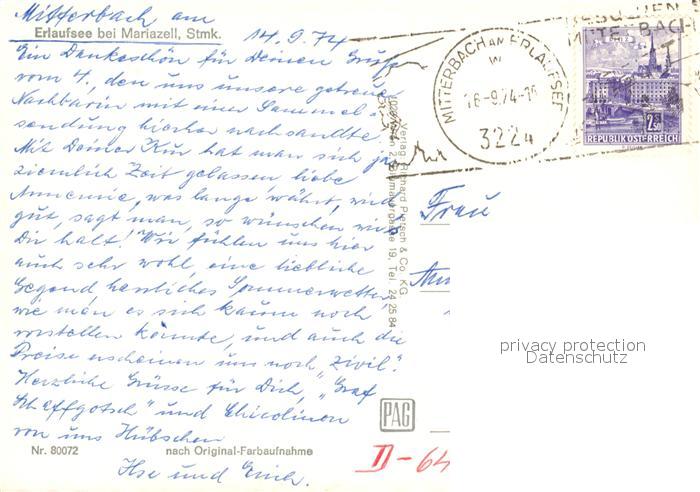 Mitterbach am
Erlaufsee bei Mariazell, Stmk.
14.9.74
Ein Dankeschön für Deinen Gruß
vom 4., den uns unsere getreue
Nachbarin mit einer Sammel-
sendung hierher nachsandte.
Mit Deiner Kur hat man sich ja
ziemlich Zeit gelassen, liebe
Annemie, was lange währt, wird
gut, sagt man, so wünschen wir's
Dir halt! Wir fühlen uns hier
auch sehr wohl, eine liebliche
Gegend herrliches Sommerwetter,
wie man es sich kaum noch
vorstellen könnte, und auch die
Preise erscheinen uns noch "zivil".
Herzliche Grüsse für Dich, "Graf
Schaffgotsch" und Chicolinen
von uns Hübschen
Ilse und Erich.
Nr. 80072
nach Original-Farbaufnahme
Verlag Richard Pietsch & Co. KG
19, Tel. 24 25 84
PAG
MITTERBACH AM ERLAUFSEE
16.-9.74-16
3224
2.50
REPUBLIK ÖSTERREICH
Frau
D-64
privacy protection
Datenschutz